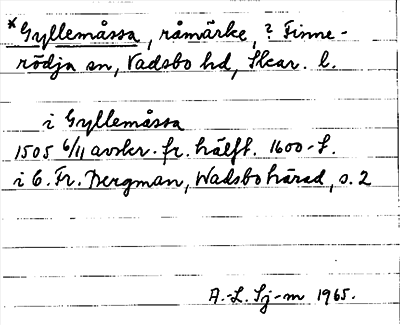 *Gyllemåssa, råmärke, ? Finne-
rödja sn, Vadsbo hd, Skar. l.
i Gyllemåssa
1505 6/11 avskr. fr. hälft. 1600-t.
i C. Fr. Bergman, Wadsbo härad, s. 2
A.-L. Sj-m 1965.